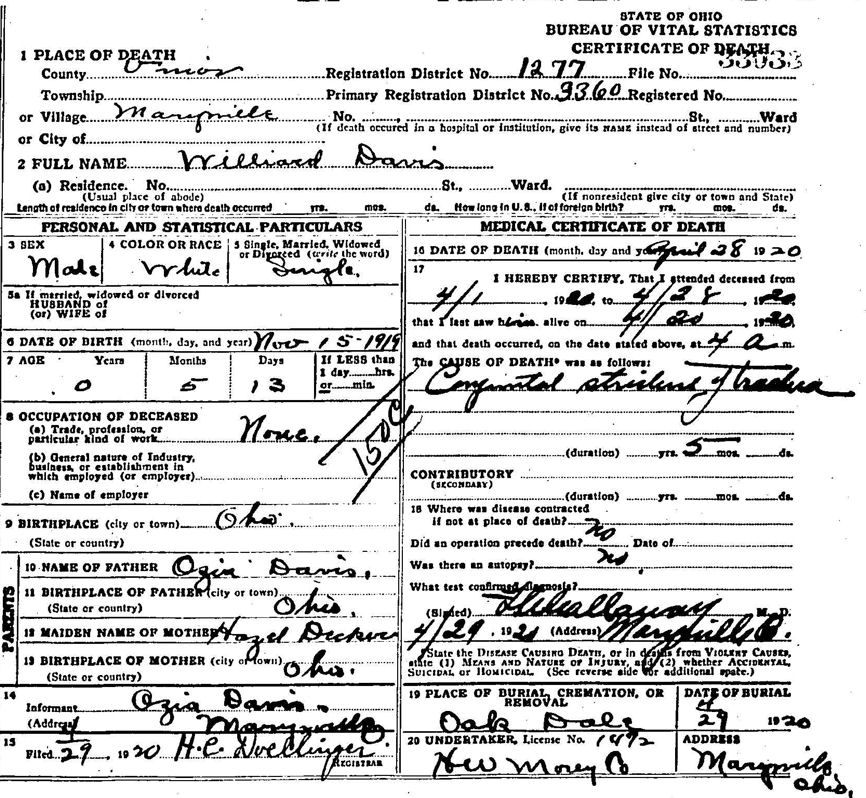 STATE OF OHIO
BUREAU OF VITAL STATISTICS
CERTIFICATE OF DEATH
33033
1 PLACE OF DEATH
County Union Registration District No. 1277 File No.
Township Primary Registration District No. 9360 Registered No.
or Village Marysville No. , St., Ward
(If death occured in a hospital or institution, give its NAME instead of street and number)
or City of
2 FULL NAME Williard Davis
(a) Residence. No. St., Ward.
(Usual place of abode) (If nonresident give city or town and State)
Length of residence in city or town where death occurred yrs. mos. ds. How long in U. S., if of foreign birth? yrs. mos. ds.
PERSONAL AND STATISTICAL PARTICULARS
3 SEX 4 COLOR OR RACE 5 Single, Married, Widowed or Divorced (write the word)
Male White Single.
5a If married, widowed or divorced
HUSBAND of
(or) WIFE of
6 DATE OF BIRTH (month, day, and year) Nov 15-1919
7 AGE Years Months Days If LESS than
1 day hrs.
or min.
0 5 13
8 OCCUPATION OF DECEASED
(a) Trade, profession, or
particular kind of work None.
(b) General nature of Industry,
business, or establishment in
which employed (or employer)
(c) Name of employer
150C
9 BIRTHPLACE (city or town) Ohio.
(State or country)
PARENTS
10 NAME OF FATHER Ozia Davis,
11 BIRTHPLACE OF FATHER (city or town)
(State or country) Ohio.
12 MAIDEN NAME OF MOTHER Hazel Decker
13 BIRTHPLACE OF MOTHER (city or town)
(State or country) Ohio.
14
Informant Ozia Davis.
(Address) Marysville
15
Filed 4/29 1920 H.C. Doellinger.
REGISTRAR
MEDICAL CERTIFICATE OF DEATH
16 DATE OF DEATH (month, day and year) April 28 1920
17
I HEREBY CERTIFY, That I attended deceased from
4/1 1920 to 4/28, 1920.
that I last saw him alive on 4/20 1920
and that death occurred, on the date stated above, at 4 a m.
The CAUSE OF DEATH* was as follows:
Congenital of trachea
(duration) yrs. 5 mos. ds.
CONTRIBUTORY
(SECONDARY)
(duration) yrs. mos. ds.
18 Where was disease contracted
if not at place of death? no
Did an operation precede death? Date of
Was there an autopsy? no.
What test confirmed diagnosis?
(Signed) Callaway M. D.
4/29, 1920 (Address) Marysville O.
*State the DISEASE CAUSING DEATH, or in deaths from VIOLENT CAUSES,
state (1) MEANS AND NATURE OF INJURY, and (2) whether ACCIDENTAL,
SUICIDAL or HOMICIDAL. (See reverse side for additional space.)
19 PLACE OF BURIAL, CREMATION, OR REMOVAL DATE OF BURIAL
Oak Dale 4/29 1920
20 UNDERTAKER, License No. 1492 ADDRESS
HW Morey Co Marysville
Ohio.